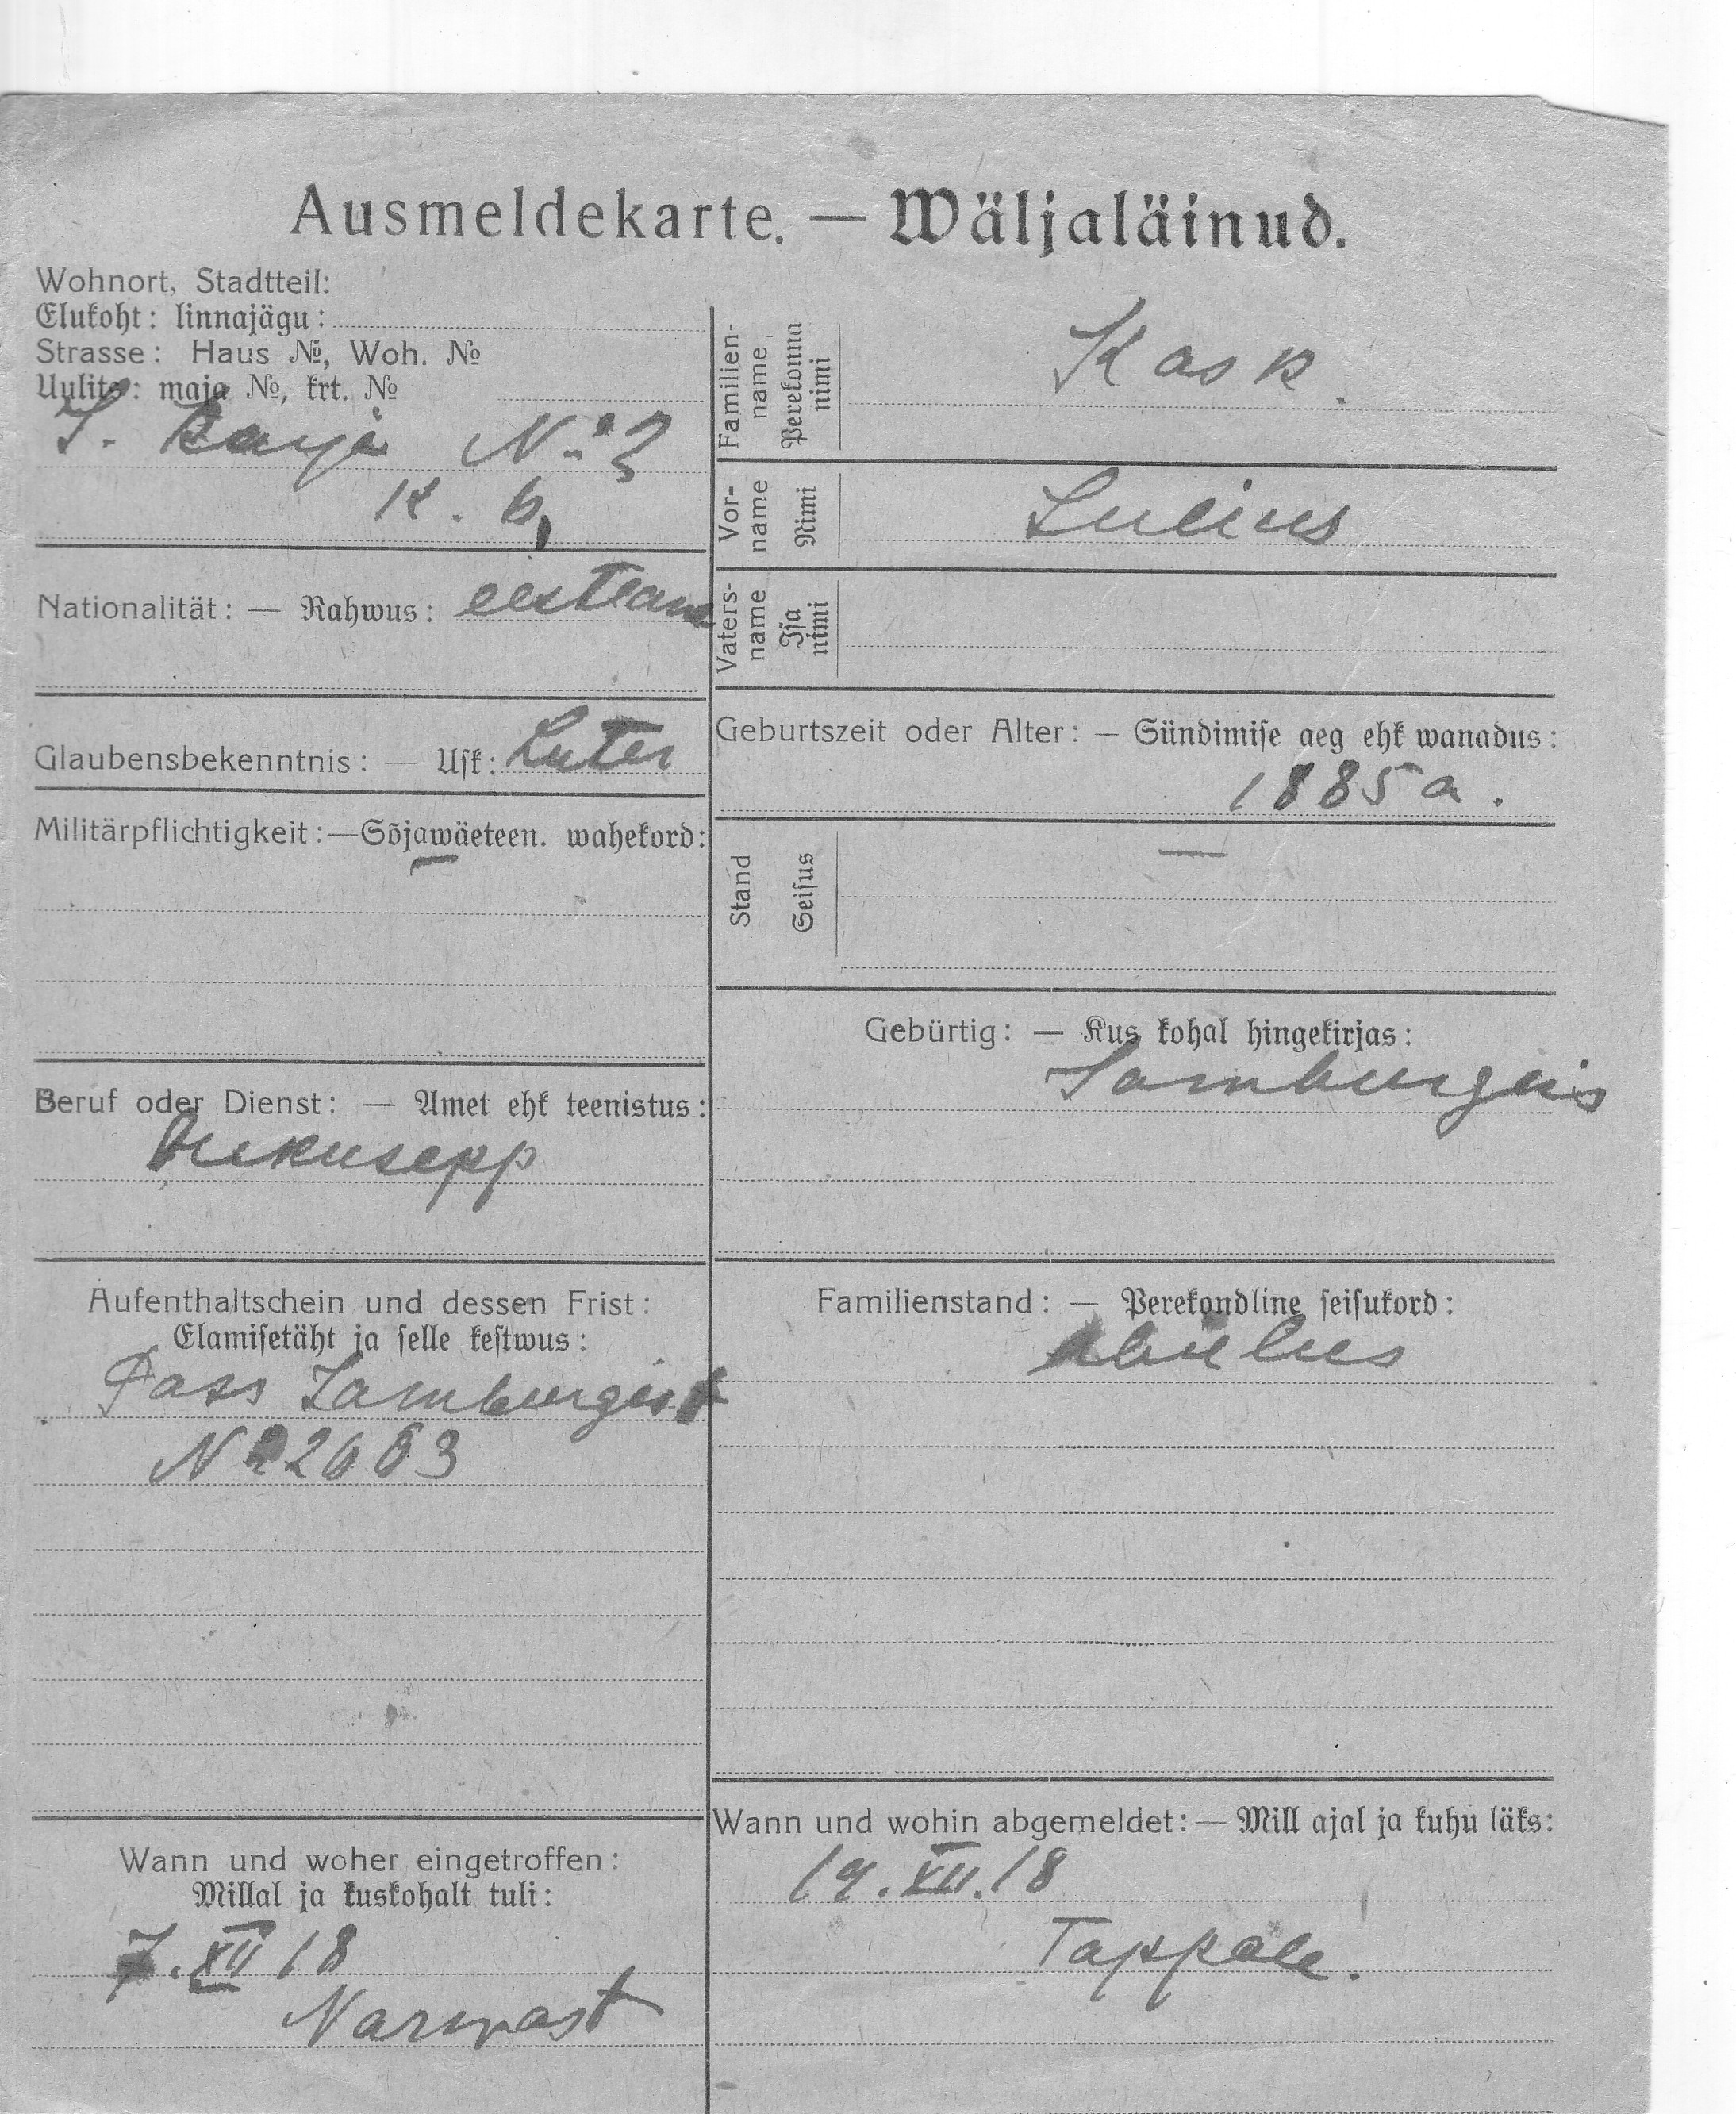 Ausmeldekarte. — Wäljaläinud.
Wohnort, Stadtteil:
Elukoht: linnajägu:
Strasse: Haus №, Woh. №
Uulits: maja №, krt. №
S. Karja № 3
K. 6,
Nationalität: — Rahwus: eestlane
Glaubensbekenntnis: — Usk: Luter
Militärpflichtigkeit:—Sõjawäeteen. wahekord:
—
Beruf oder Dienst: — Amet ehk teenistus:
Lukusepp
Aufenthaltschein und dessen Frist:
Elamisetäht ja selle kestwus:
Pass Jamburgist
N 22683
Wann und woher eingetroffen:
Millal ja kuskohalt tuli:
7. XII 18
Narwast
Familien-name Perekonna nimi
Kask.
Vor-name Nimi
Julius
Vaters-name Isa nimi
Geburtszeit oder Alter: — Sündimise aeg ehk wanadus:
1885 a.
Stand Seisus
—
Gebürtig: — Kus kohal hingekirjas:
Jamburgis
Familienstand: — Perekondline seisukord:
abielus
Wann und wohin abgemeldet:—Mill ajal ja kuhu läks:
19. XII. 18
Tappale.